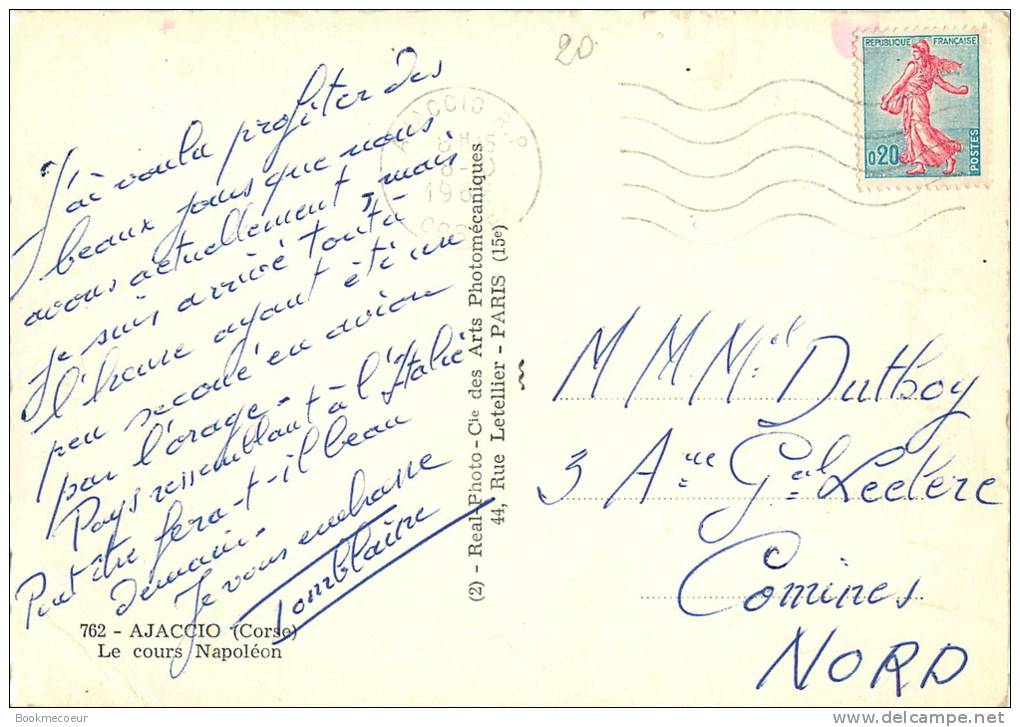 20
J'ai voulu profiter des
beaux jours que nous
avons actuellement, mais
je suis arrivé tout à
l'heure ayant été un
peu secoué en avion
par l'orage -
Pays ressemblant à l'Italie
Peut être fera-t-il beau
demain -
Je vous embrasse
762 - AJACCIO (Corse)
Le cours Napoléon
(2) - Real-Photo - Cie des Arts Photomécaniques
44, Rue Letellier - PARIS (15e)
AJACCIO R.P.
REPUBLIQUE FRANÇAISE
0,20
POSTES
M M Mel Duthoy
3 Aue Gal Leclerc
Comines
NORD
Bookmecoeur
delcampe.net